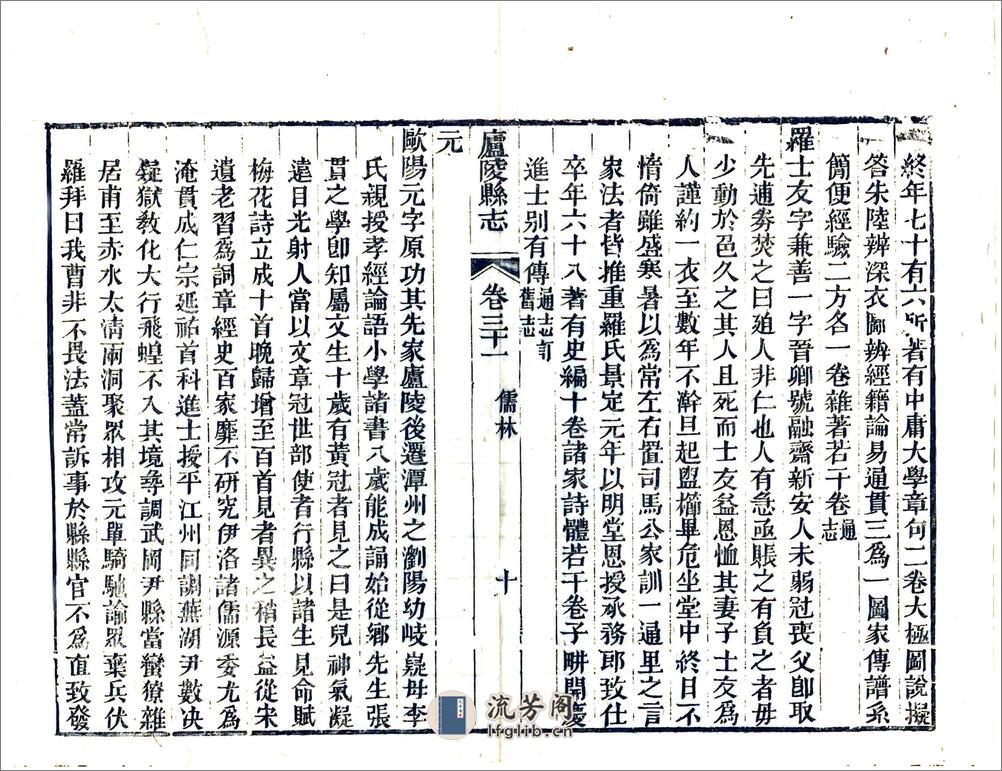 終年七十有六所著有中庸大學章句二卷大極圖說擬
答朱陸辨深衣圖辨經籍論易通貫三爲一圖家傳譜系
簡便經驗二方各一卷雜著若干卷通志
羅士友字兼善一字晉卿號融齋新安人未弱冠喪父卽取
先逋劵焚之曰殖人非仁也人有急亟賬之有負之者毋
少動於邑久之其人且死而士友益恩恤其妻子士友爲
人謹約一衣至數年不澣旦起盥櫛畢危坐堂中終日不
惰倚雖盛寒暑以爲常左右置司馬公家訓一通里之言
家法者皆推重羅氏景定元年以明堂恩授承務郎致仕
卒年六十八著有史編十卷諸家詩體若干卷子畊開慶
進士別有傳通志訂舊志
廬陵縣志 卷三十一 儒林 十
元
歐陽元字原功其先家廬陵後遷潭州之瀏陽幼岐嶷母李
氏親授孝經論語小學諸書八歲能成誦始從鄉先生張
貫之學卽知屬文生十歲有黃冠者見之曰是兒神氣凝
遠目光射人當以文章冠世部使者行縣以諸生見命賦
梅花詩立成十首晚歸增至百首見者異之稍長益從宋
遺老習爲詞章經史百家靡不研究伊洛諸儒源委尤爲
淹貫成仁宗延祐首科進士授平江州同調蕪湖尹數决
疑獄教化大行飛蝗不入其境尋調武岡尹縣當蠻獠雜
居甫至赤水太清兩洞聚眾相攻元單騎馳諭眾棄兵伏
羅拜曰我曹非不畏法蓋常訴事於縣縣官不爲直致發
流芳閣
lfglib.cn